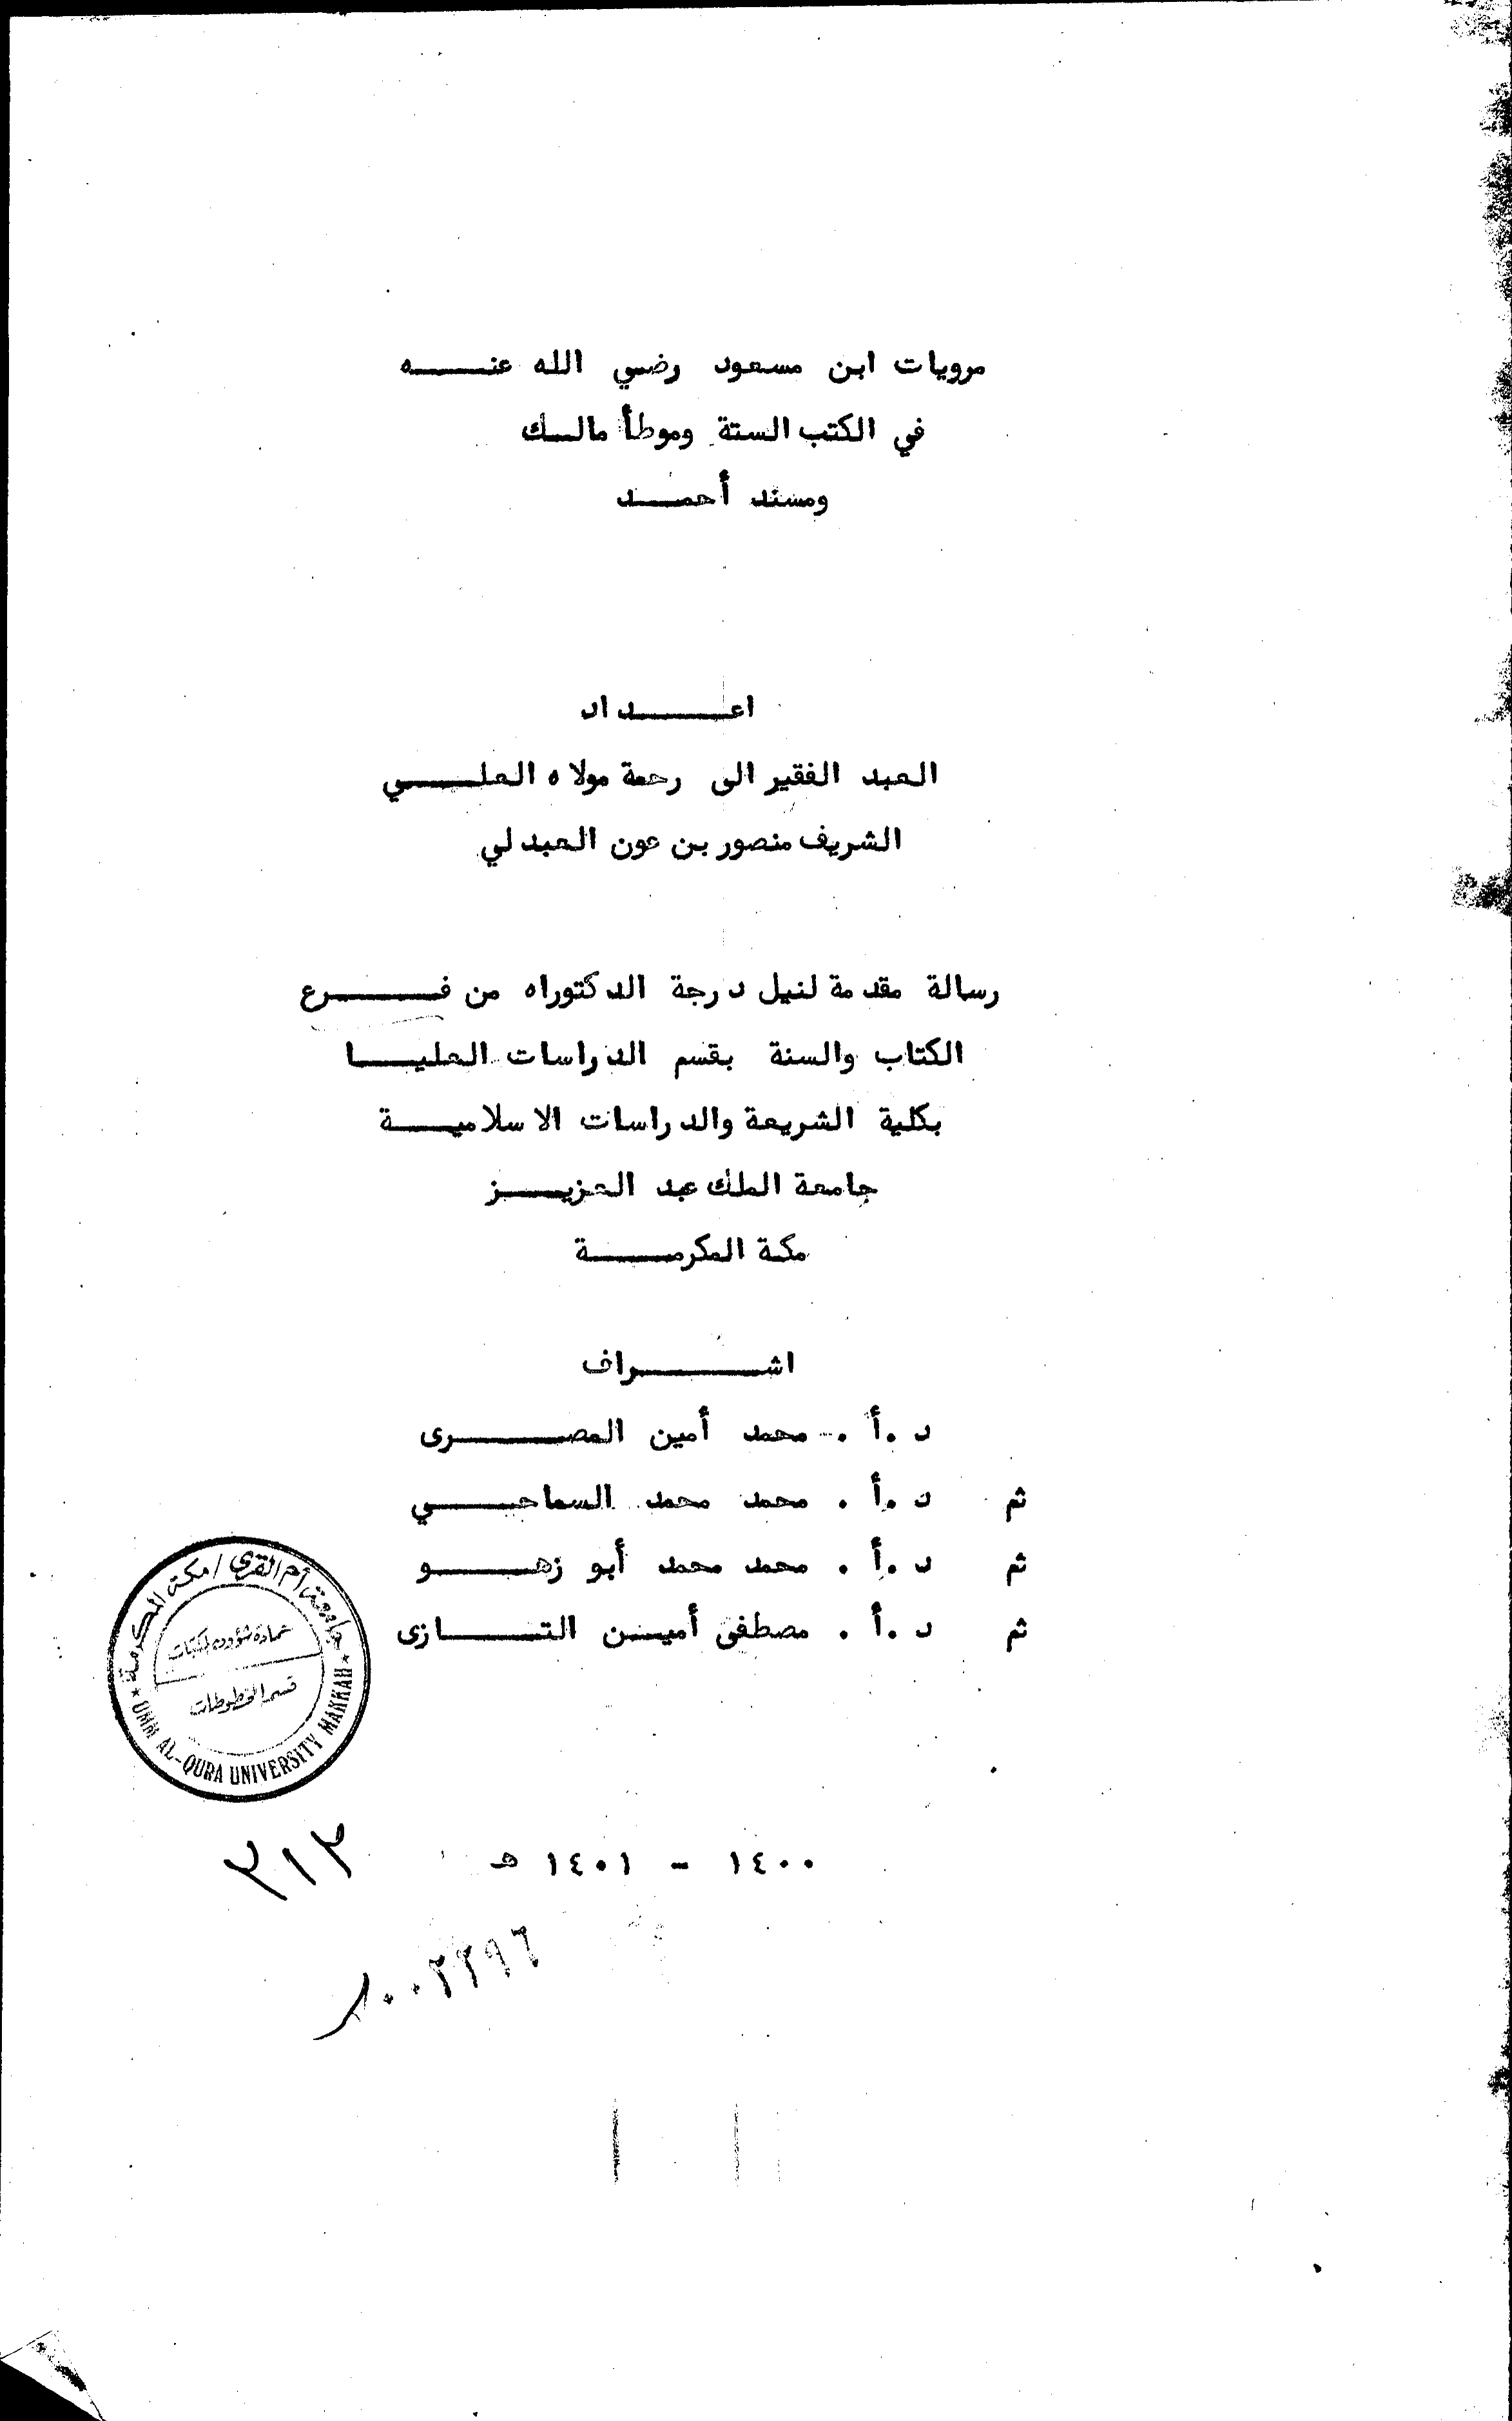 مرويات ابن مسعود رضي الله عنـــه
في الكتب الستة وموطأ مالـك
ومسند أحمـــد
اعـــداد
العبد الفقير الى رحمة مولاه العلـــي
الشريف منصور بن عون العبدلي
رسالة مقدمة لنيل درجة الدكتوراه من فـــرع
الكتاب والسنة بقسم الدراسات العليـــا
بكلية الشريعة والدراسات الاسلاميـــة
جامعة الملك عبد العزيـــز
مكة المكرمـــة
اشـــراف
د .أ . محمد أمين المصـــرى
ثم د .أ . محمد محمد السماحـــي
ثم د .أ . محمد محمد أبو زهـــو
ثم د .أ . مصطفى أميـن التـــازى
جامعة أم القرى / مكة المكرمة
عمادة شؤون المكتبات
قسم المخطوطات
UMM AL-QURA UNIVERSITY MAKKAH
١٤٠٠ - ١٤٠١ هـ